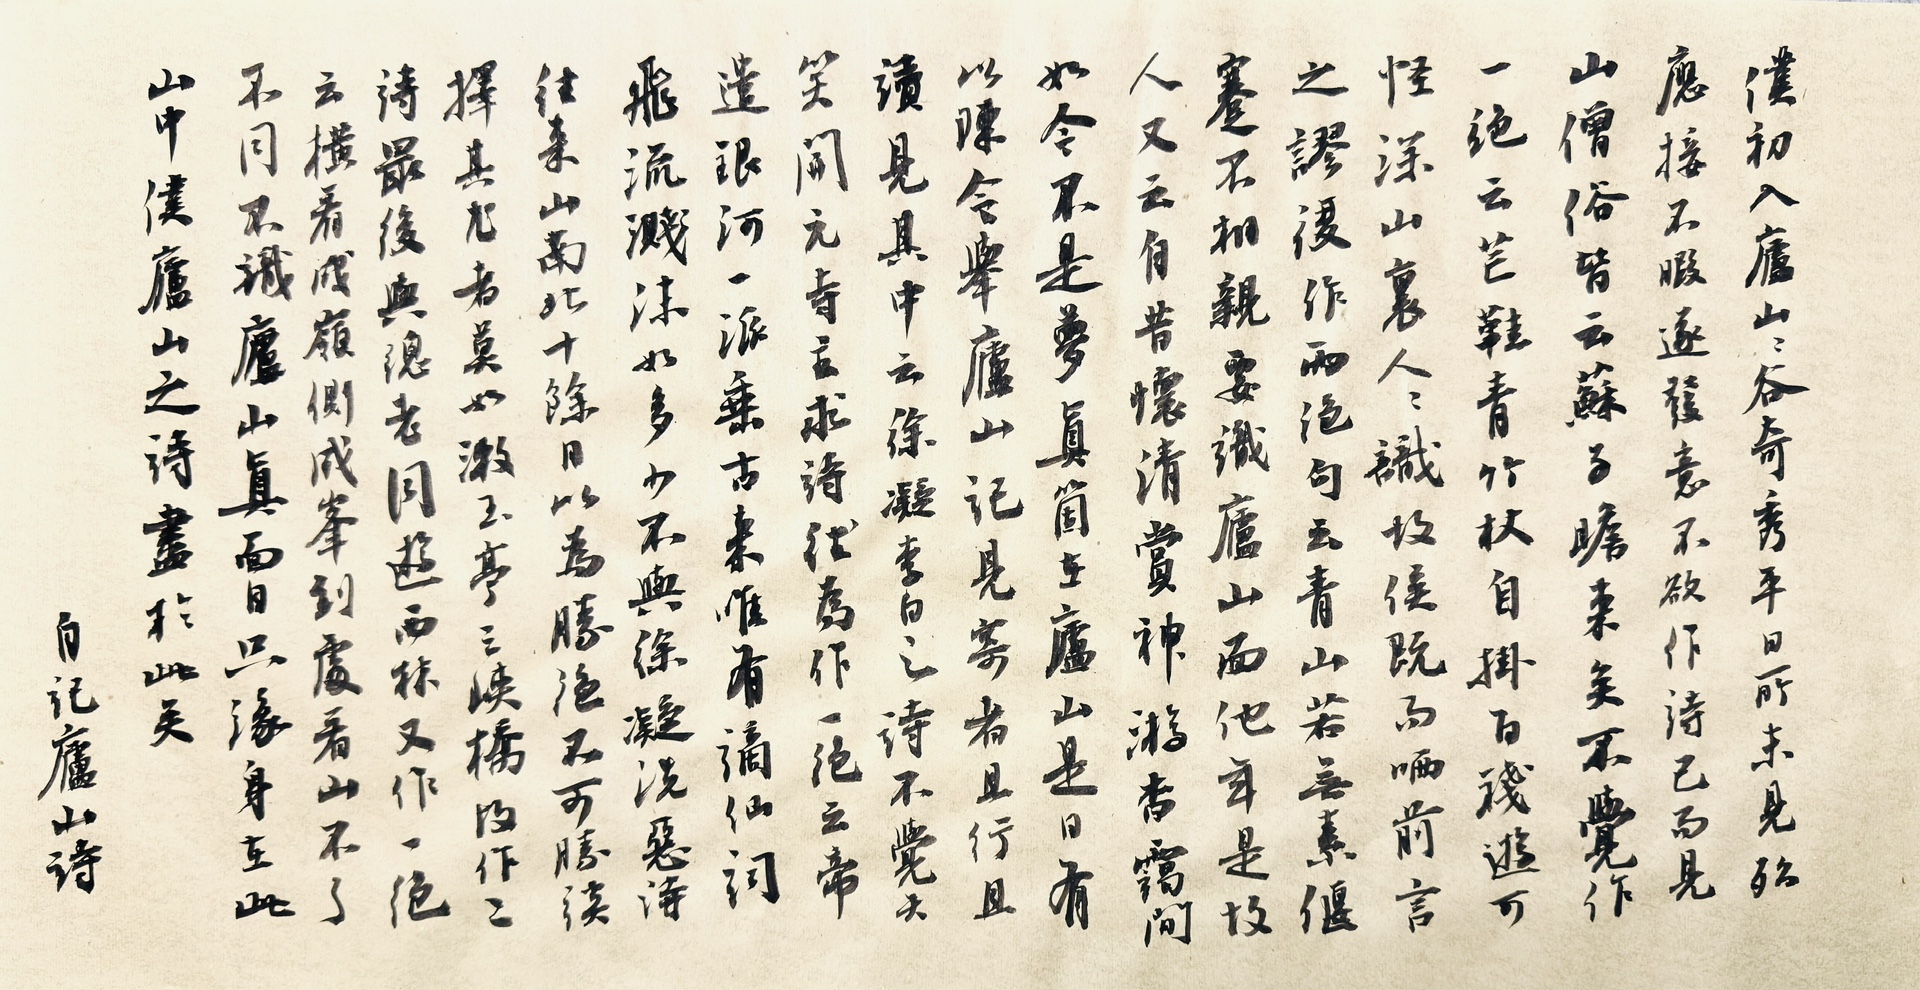 僕初入廬山山谷奇秀平日所未見殆
應接不暇遂發意不欲作詩已而見
山僧俗皆云蘇子瞻來矣不覺作
一絕云芒鞋青竹杖自掛百錢遊可
怪深山裏人人識故侯既而哂前言
之謬復作兩絕句云青山若無素偃
蹇不相親要識廬山面他年是故
人又云自昔懷清賞神遊杳靄間
如今不是夢真箇在廬山是日有
以陳令舉廬山記見寄者且行且
讀見其中云徐凝李白之詩不覺失
笑開元寺主求詩往為作一絕云帝
遣銀河一派垂古來唯有謫仙詞
飛流濺沫如多少不與徐凝洗惡詩
往來山南北十餘日以為勝絕不可勝談
擇其尤者莫如漱玉亭三峽橋故作二
詩最後與總老同遊西林又作一絕
云橫看成嶺側成峯到處看山不了
不同不識廬山真面目只緣身在此
山中僕廬山之詩盡於此矣
自記廬山詩